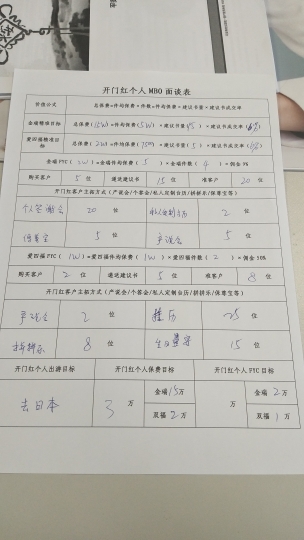 开门红个人 MBO 面谈表
价值公式 总保费=件均保费×件数=件均保费×建议书量×建议书成交率
金瑞标准目标 总保费(15W)=件均保费(5W)×建议书量(15)×建议书成交率(
爱四福标准目标 总保费(2W)=件均保费(7500)×建议书量(5)×建议书成交率(
金瑞 FYC(1W)=金瑞件均保费(5)×金瑞件数(4)×佣金 5%
购买客户 5 位 递送建议书 15 位 准客户 20 位
开门红客户主拓方式(产说会/个答会/私人定制台历/拼拼乐/保尊宝等)
个人答谢会 20 位 私人定制台历 2 位
保尊宝 5 位 产说会 5 位
爱四福 FYC(1W)=爱四福件均保费(1W)×爱四福件数(2)×佣金 50%
购买客户 2 位 递送建议书 5 位 准客户 8 位
开门红客户主拓方式(产说会/个客会/私人定制台历/拼拼乐/保尊宝等)
产说会 2 位 挂历 25 位
拼拼乐 8 位 生日 15 位
开门红个人出游目标 开门红个人保费目标 开门红个人 FYC 目标
去日本 3万 金瑞 15万 万 金瑞 2万
双福 2万 双福 1万